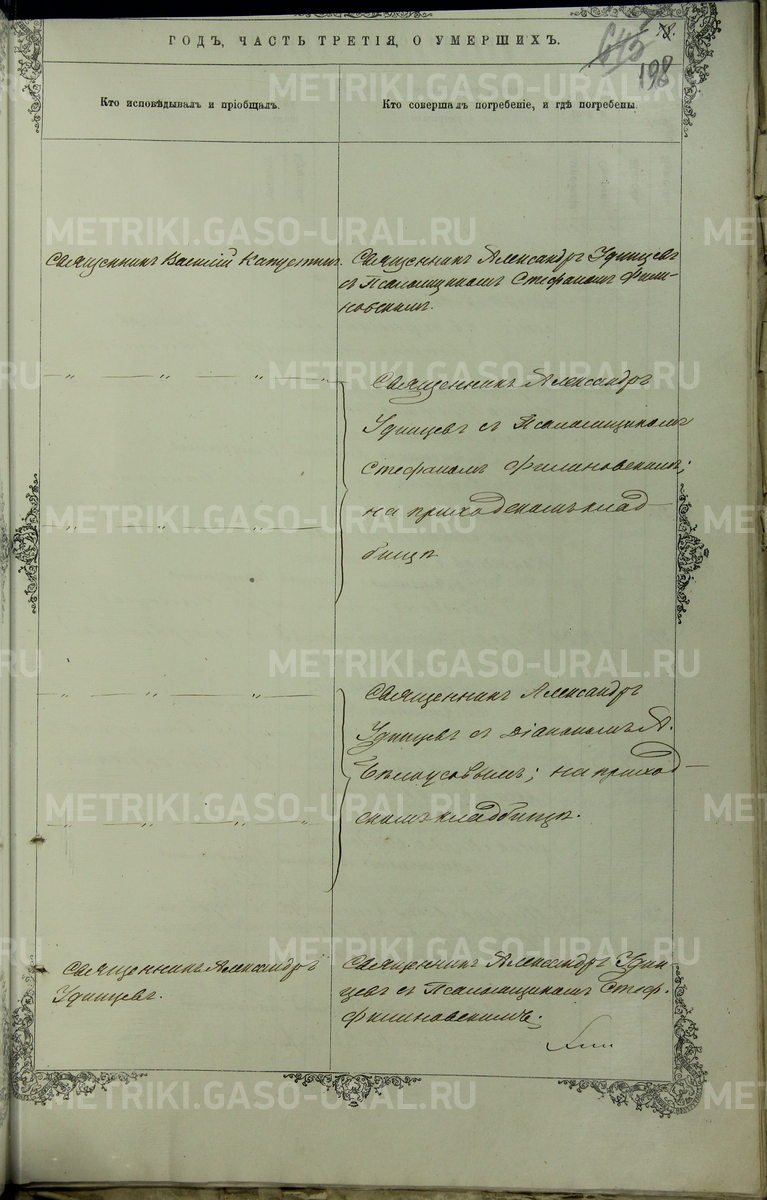 ГОДЪ, ЧАСТЬ ТРЕТІЯ, О УМЕРШИХЪ.
198
Кто исповѣдывалъ и пріобщалъ.
Кто совершалъ погребеніе, и гдѣ погребены.
Священникъ Василій Капустинъ.
Священникъ Александръ Удинцевъ
съ Псаломщикомъ Стефаномъ Фили-
новскимъ.
〃 〃 〃 〃
Священникъ Александръ
Удинцевъ съ Псаломщикомъ
Стефаномъ Филиновскимъ;
на приходскомъ клад-
бищѣ
〃 〃 〃
〃 〃 〃
Священникъ Александръ
Удинцевъ съ Діакономъ А.
Бѣлоусовымъ; на приход-
скомъ кладбищѣ.
〃 〃 〃 〃
Священникъ Александръ
Удинцевъ.
Священникъ Александръ Удин-
цевъ съ Псаломщикомъ Стеф.
Филиновскимъ;
METRIKI.GASO-URAL.RU